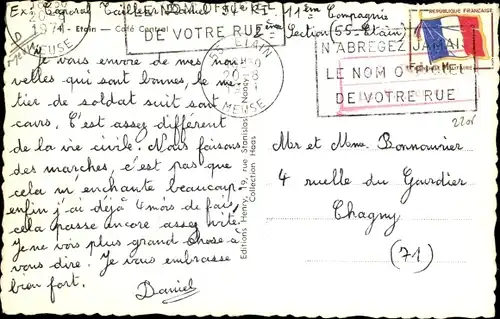 Ex: Caporal Taillier Daniel 11ème Compagnie
2ème Section (55-Etain)
Etain - Café Central
1971
MEUSE
DE VOTRE RUE
55 ETAIN
MEUSE
N'ABREGEZ JAMAIS
LE NOM
DE VOTRE RUE
REPUBLIQUE FRANÇAISE
F.M
2206
Je vous envoie de mes nou
velles qui sont bonnes, le mé
tier de soldat suit son
cours. C'est assez différent
de la vie civile. Nous faisons
des marches, c'est pas que
cela m'enchante beaucoup
enfin j'ai déjà 4 mois de fait,
cela passe encore assez vite.
Je ne vois plus grand chose à
vous dire. Je vous embrasse
bien fort.
Daniel
Editions Henry, 19, rue Stanislas - Nancy
Collection Haas
Mr et Mme Bonnourier
4 ruelle du Gardier
Chagny
(71)